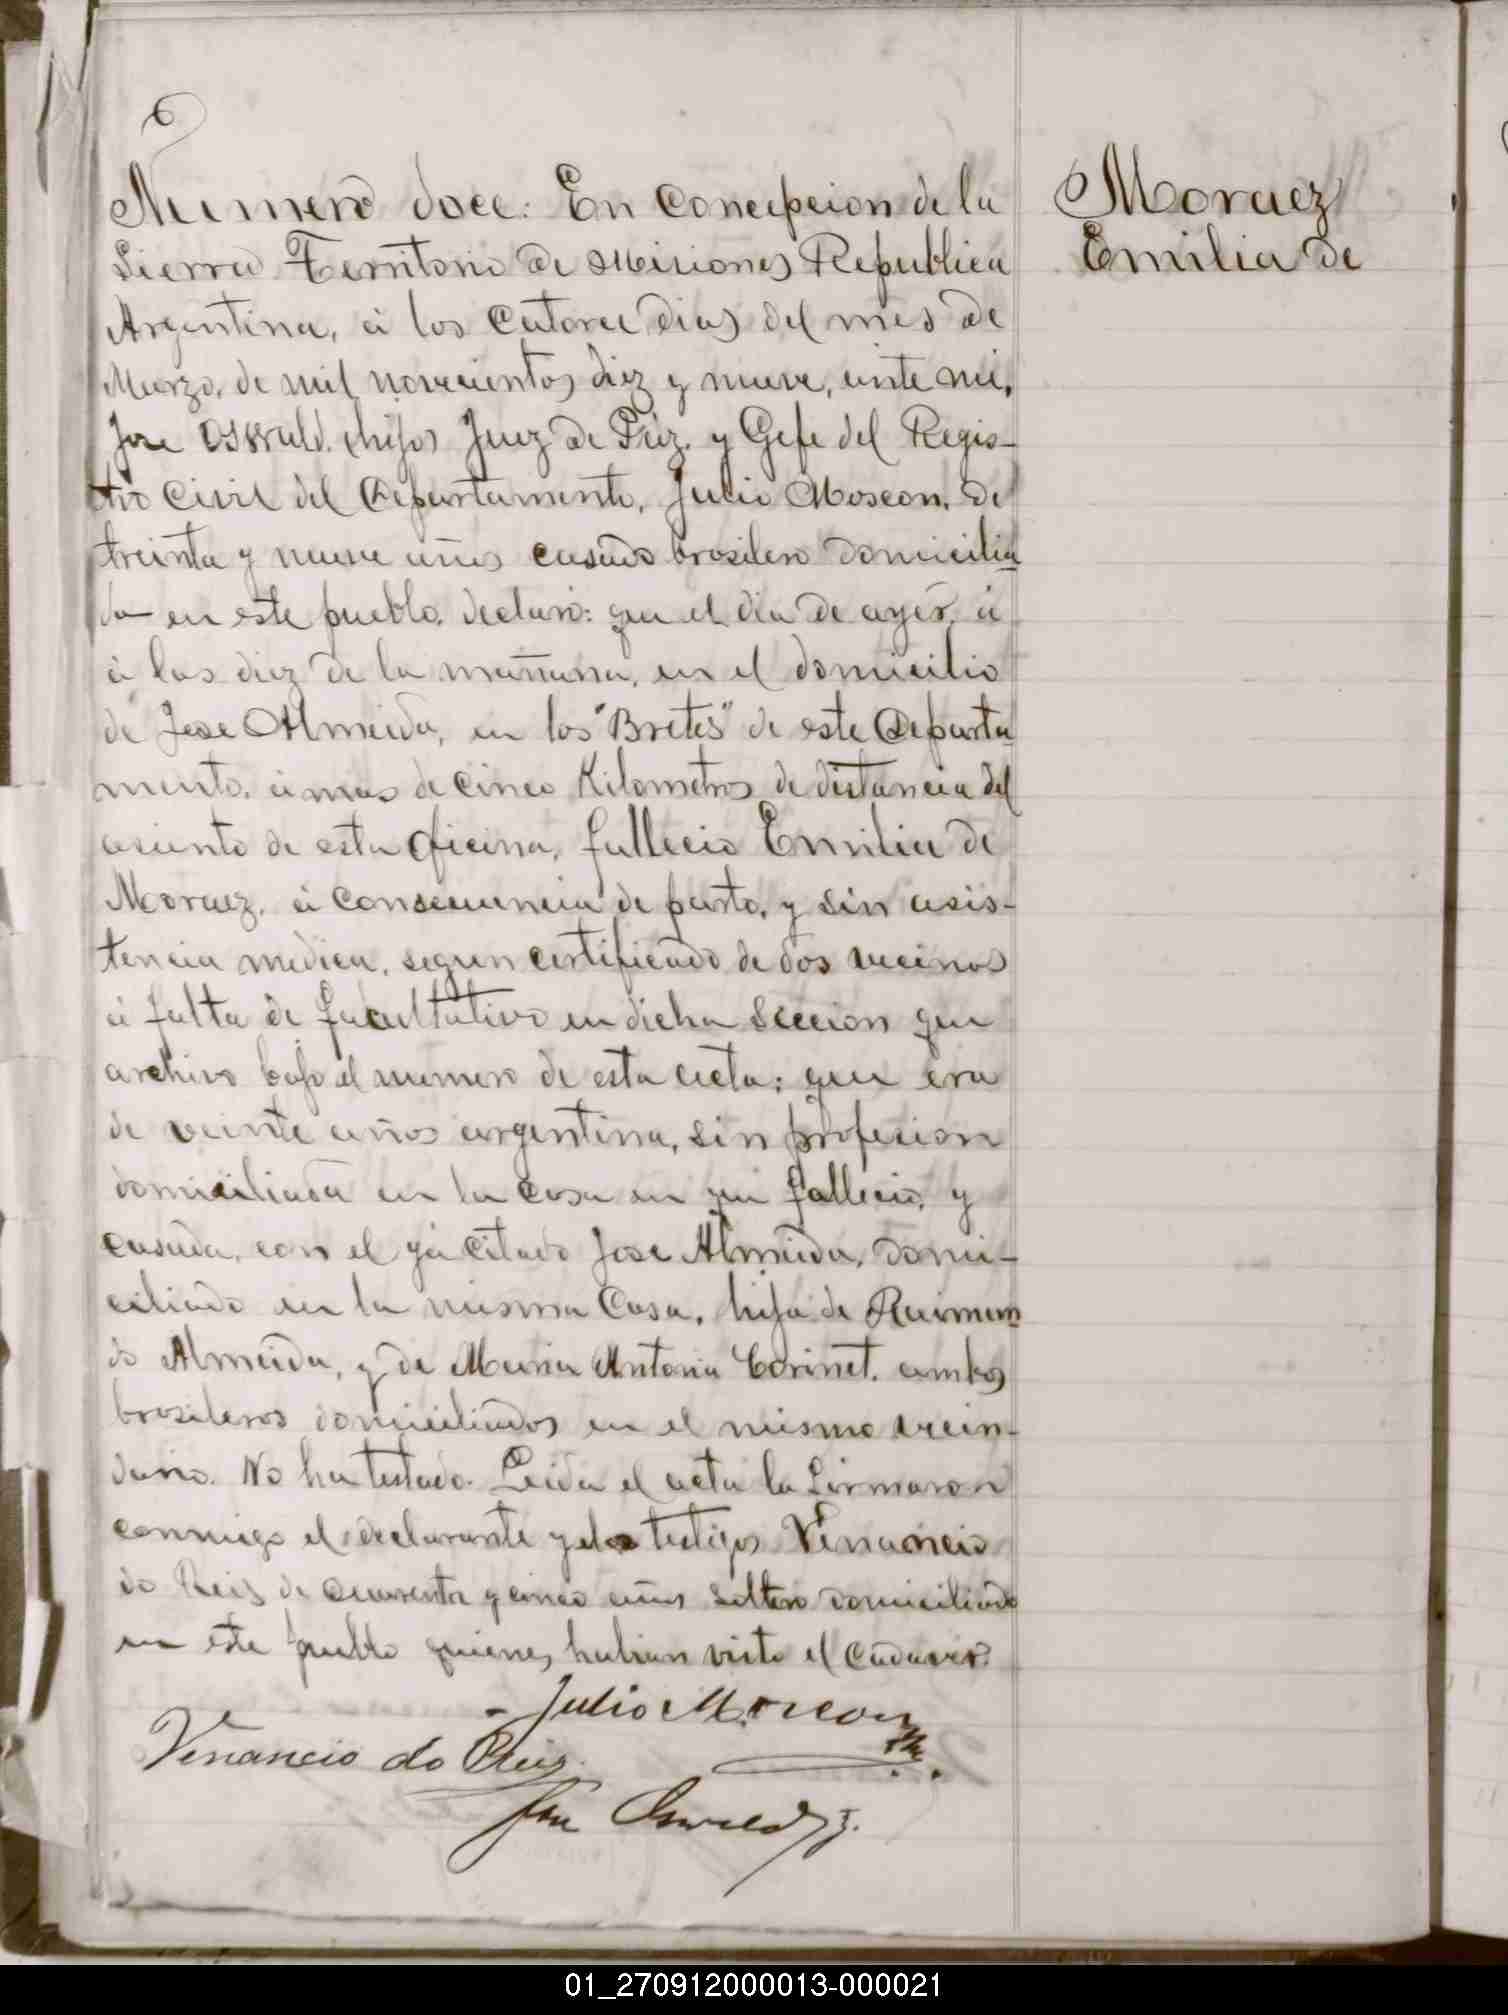 Numero doce: En Concepcion de la
Sierra Territorio de Misiones Republica
Argentina, á los Catorce dias del mes de
Marzo, de mil novecientos diez y nueve, ante mi,
Jose Oswald. hijo, Juez de Paz, y Gefe del Regis-
tro Civil del Departamento, Julio Moscon, de
treinta y nueve años casado brasilero domicilia
do en este pueblo, declaró: que el dia de ayer, á
á las diez de la mañana, en el domicilio
de Jose Almeida, en los "Bretes" de este Departa
mento, á mas de cinco Kilometros de distancia del
asiento de esta oficina, fallecio Emilia de
Moraez, á consecuencia de parto, y sin asis-
tencia medica, segun certificado de dos vecinos
á falta de facultativo en dicha Seccion que
archivo bajo el numero de esta acta; que era
de veinte años argentina, sin profesion
domiciliada en la casa en que fallecio, y
casada, con el ya citado Jose Almeida, domi-
ciliado en la misma Casa, hija de Raimun
do Almeida, y de Maria Antonia Corinet, ambos
brasileros domiciliados en el mismo vecin-
dario. No ha testado. Leida el acta la firmaron
conmigo el declarante y el testigo Venancio
do Reis de cuarenta y cinco años soltero domiciliado
en este pueblo quienes habian visto el cadaver.
Julio Moscon
Venancio do Reis
Jose Oswald h.
Moraez
Emilia de
01_270912000013-000021